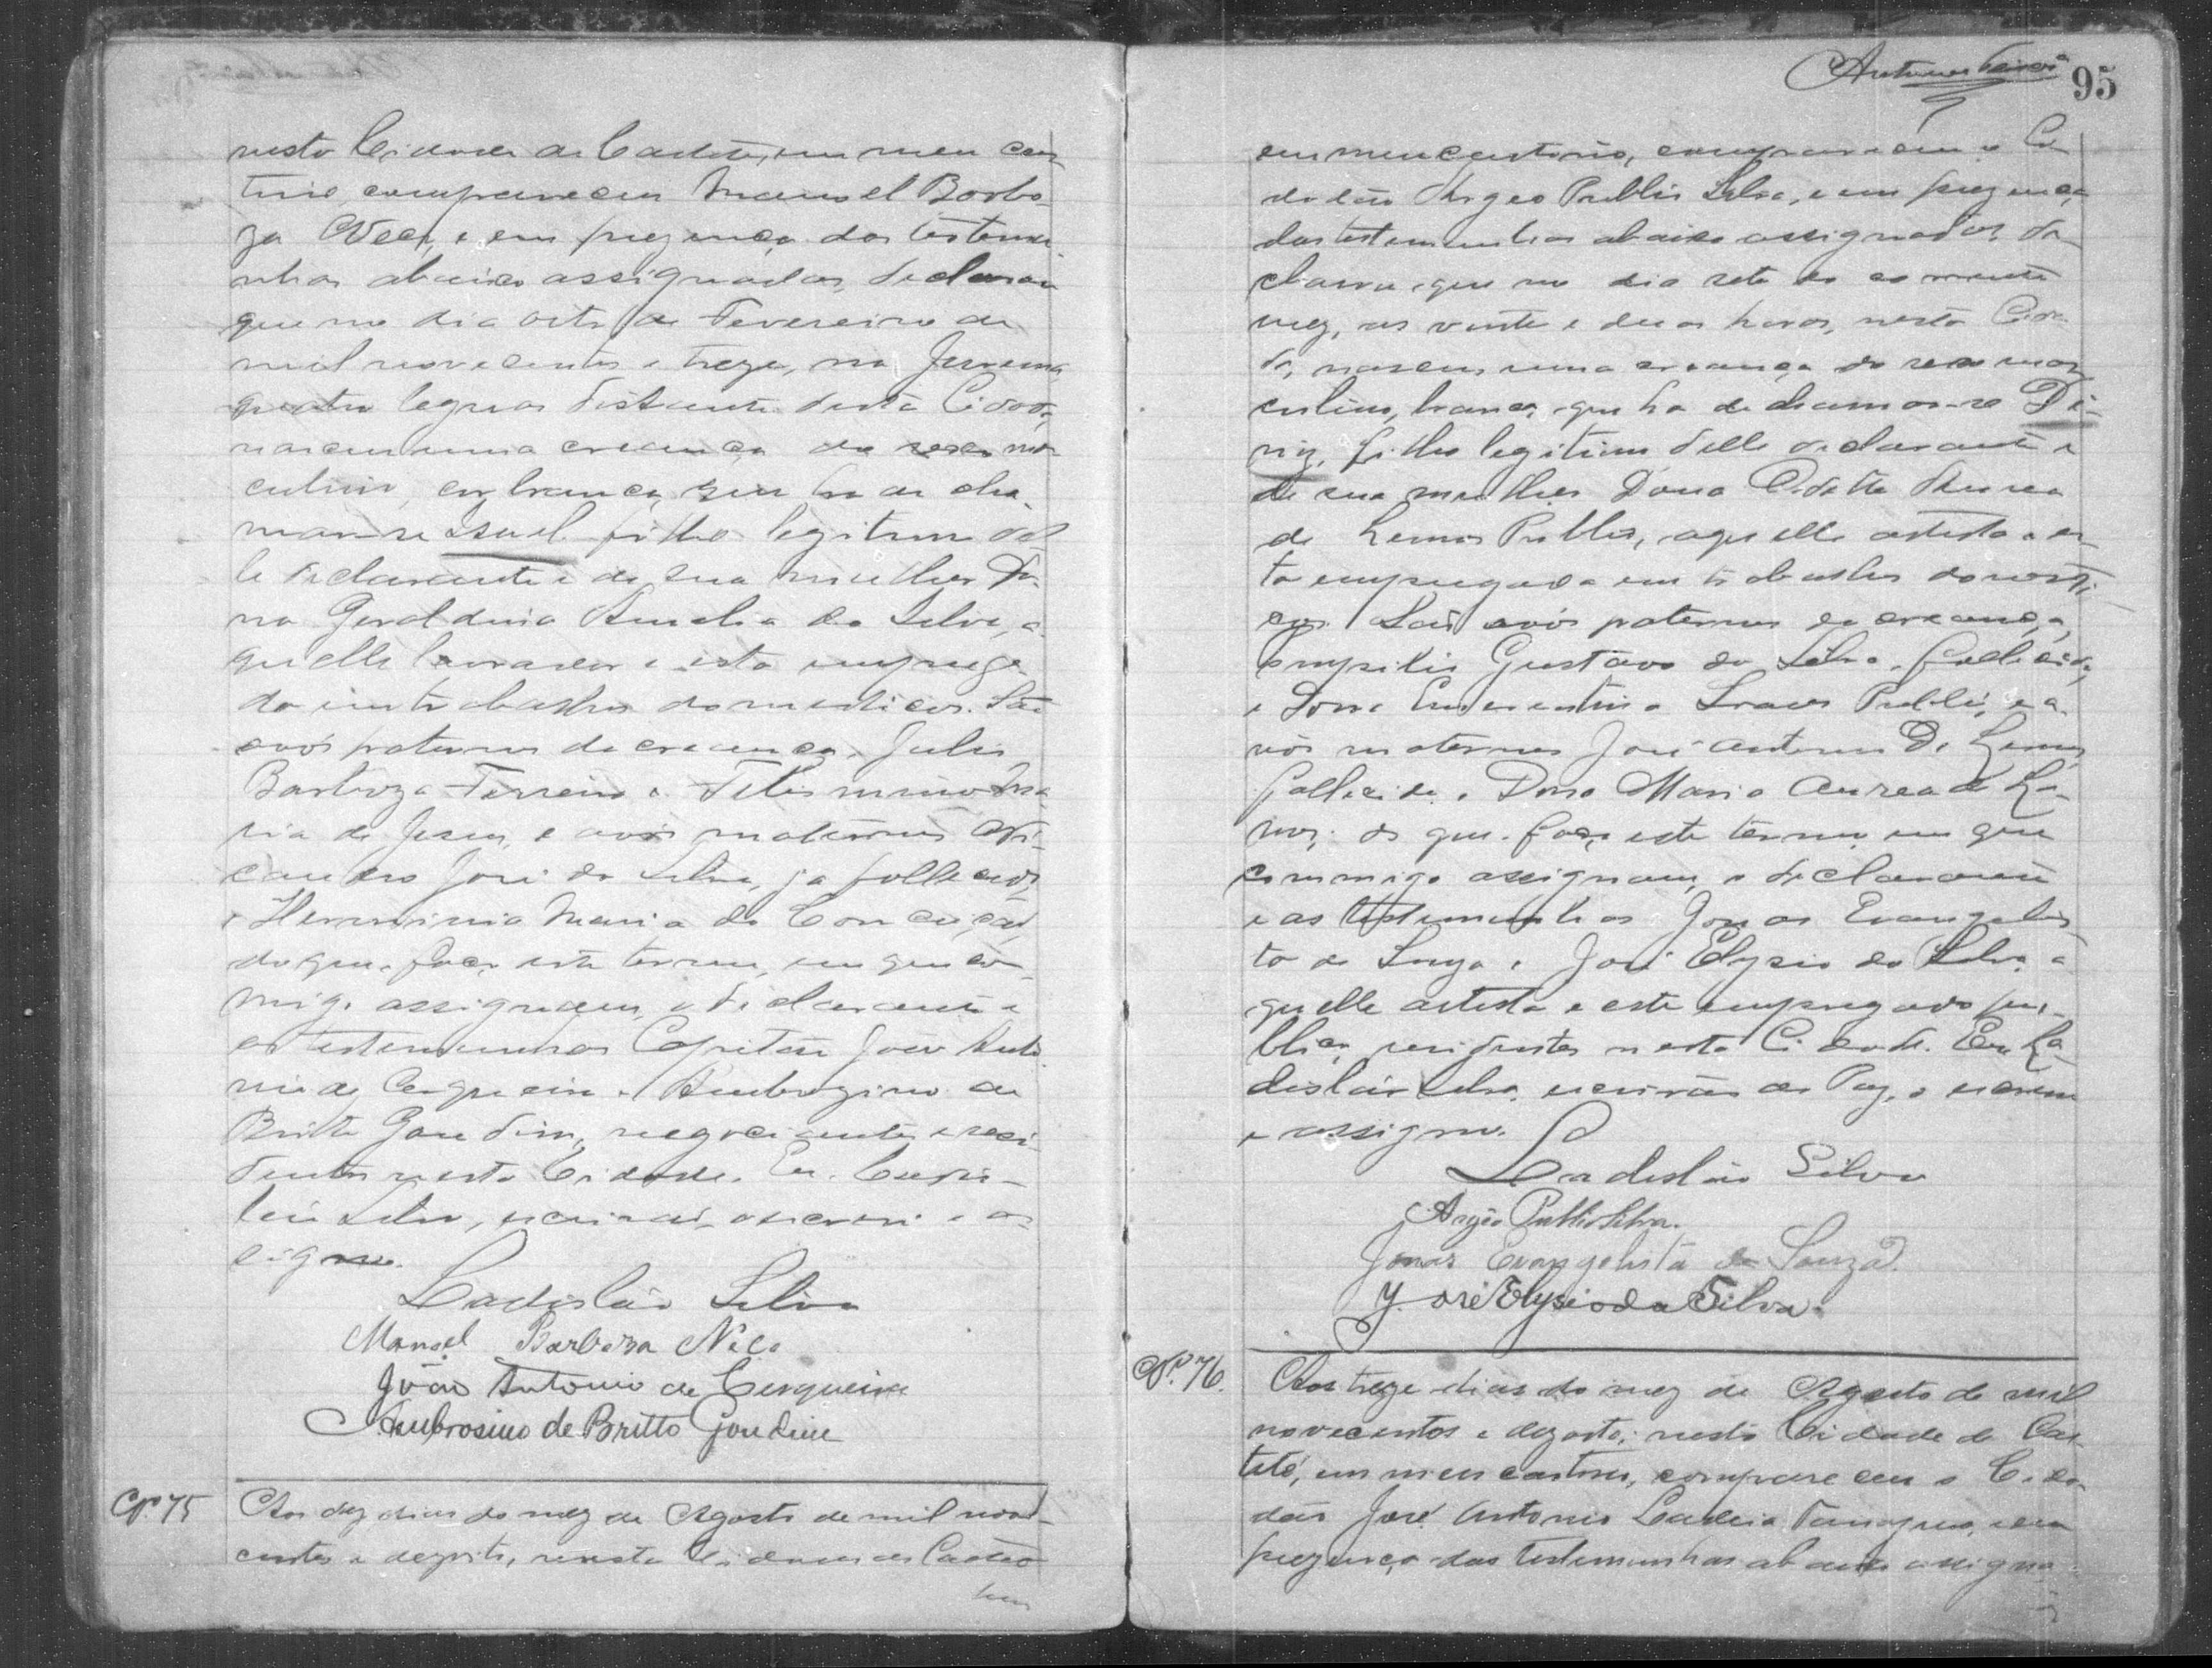 nesta Cidade de Caeteté, em meu car-
torio, compareceu Manoel Barbo-
za Neco, e em prezença das testemu-
nhas abaixo assignadas, declarou
que no dia oito de Fevereiro de
mil novecentos e treze, na Jurema,
quatro leguas distante desta Cidade,
nasceu uma creança do sexo mas-
culino, cor branca, que ha de cha-
mar-se Isael filho legitimo del-
le declarante e de sua mulher Do-
na Geraldina Amelia da Silva, a-
quelle lavrador e esta emprega-
da em trabalhos domesticos. São
avós paternos da creança, Julio
Barboza Ferreira e Felismina Ma-
ria de Jesus, e avós maternos
José da Silva, ja fallecido
e Herminia Maria da Conceição,
do que faço este termo, em que co-
migo assignam, o declarante e
as testemunhas Capitão João Anto-
nio de Cerqueira e Ambrozino de
Britto Gondim, negociantes e resi-
dentes nesta Cidade. Eu,
Silva, escrivão, o escrevi e as-
signo.
Ladisláo Silva
Manoel Barboza Neco
João Antonio de Cerqueira
Ambrosino de Britto Gondim
Nº. 75 Aos dez dias do mez de Agosto de mil nove-
centos e dezoito, nesta Cidade de Caeteté
em
95
em meu cartorio, compareceu o Ci-
dadão Argeo Publio Silva, e em prezença
das testemunhas abaixo assignadas, de-
clarou que no dia sete do corrente
mez, as vinte e duas horas, nesta Cida-
de, nasceu uma creança do sexo mas-
culino, branca, que ha de chamar-se Di-
niz, filho legitimo delle declarante e
de sua mulher Dona Odette Aurea
de Lemos Publio, aquelle artista e es-
ta empregada em trabalhos domesti-
cos. São avós paternos da creança,
Pompilio Gustavo da Silva, fallecido,
e Dona Publio, e a-
vós maternos José Antonio De Lemos,
fallecido e Dona Maria Aurea de Le-
mos; do que faço este termo em que
commigo assignam, o declarante
e as testemunhas Jonas Evangelis-
ta de Souza e José Elysio da Silva, a-
quelle artista e este empregado pu-
blico, residentes nesta Cidade. Eu La-
disláo Silva, escrivão de Paz, o escrevi
e assigno.
Ladisláo Silva
Argeo Publio Silva.
Jonas Evangelista de Souza.
José Elysio da Silva.
Nº. 76. Aos treze dias do mez de Agosto de mil
novecentos e dezoito, nesta Cidade de Cae-
teté, em meu cartorio, compareceu o Cida-
dão José Antonio Ladeia e em
prezença das testemunhas abaixo assigna-